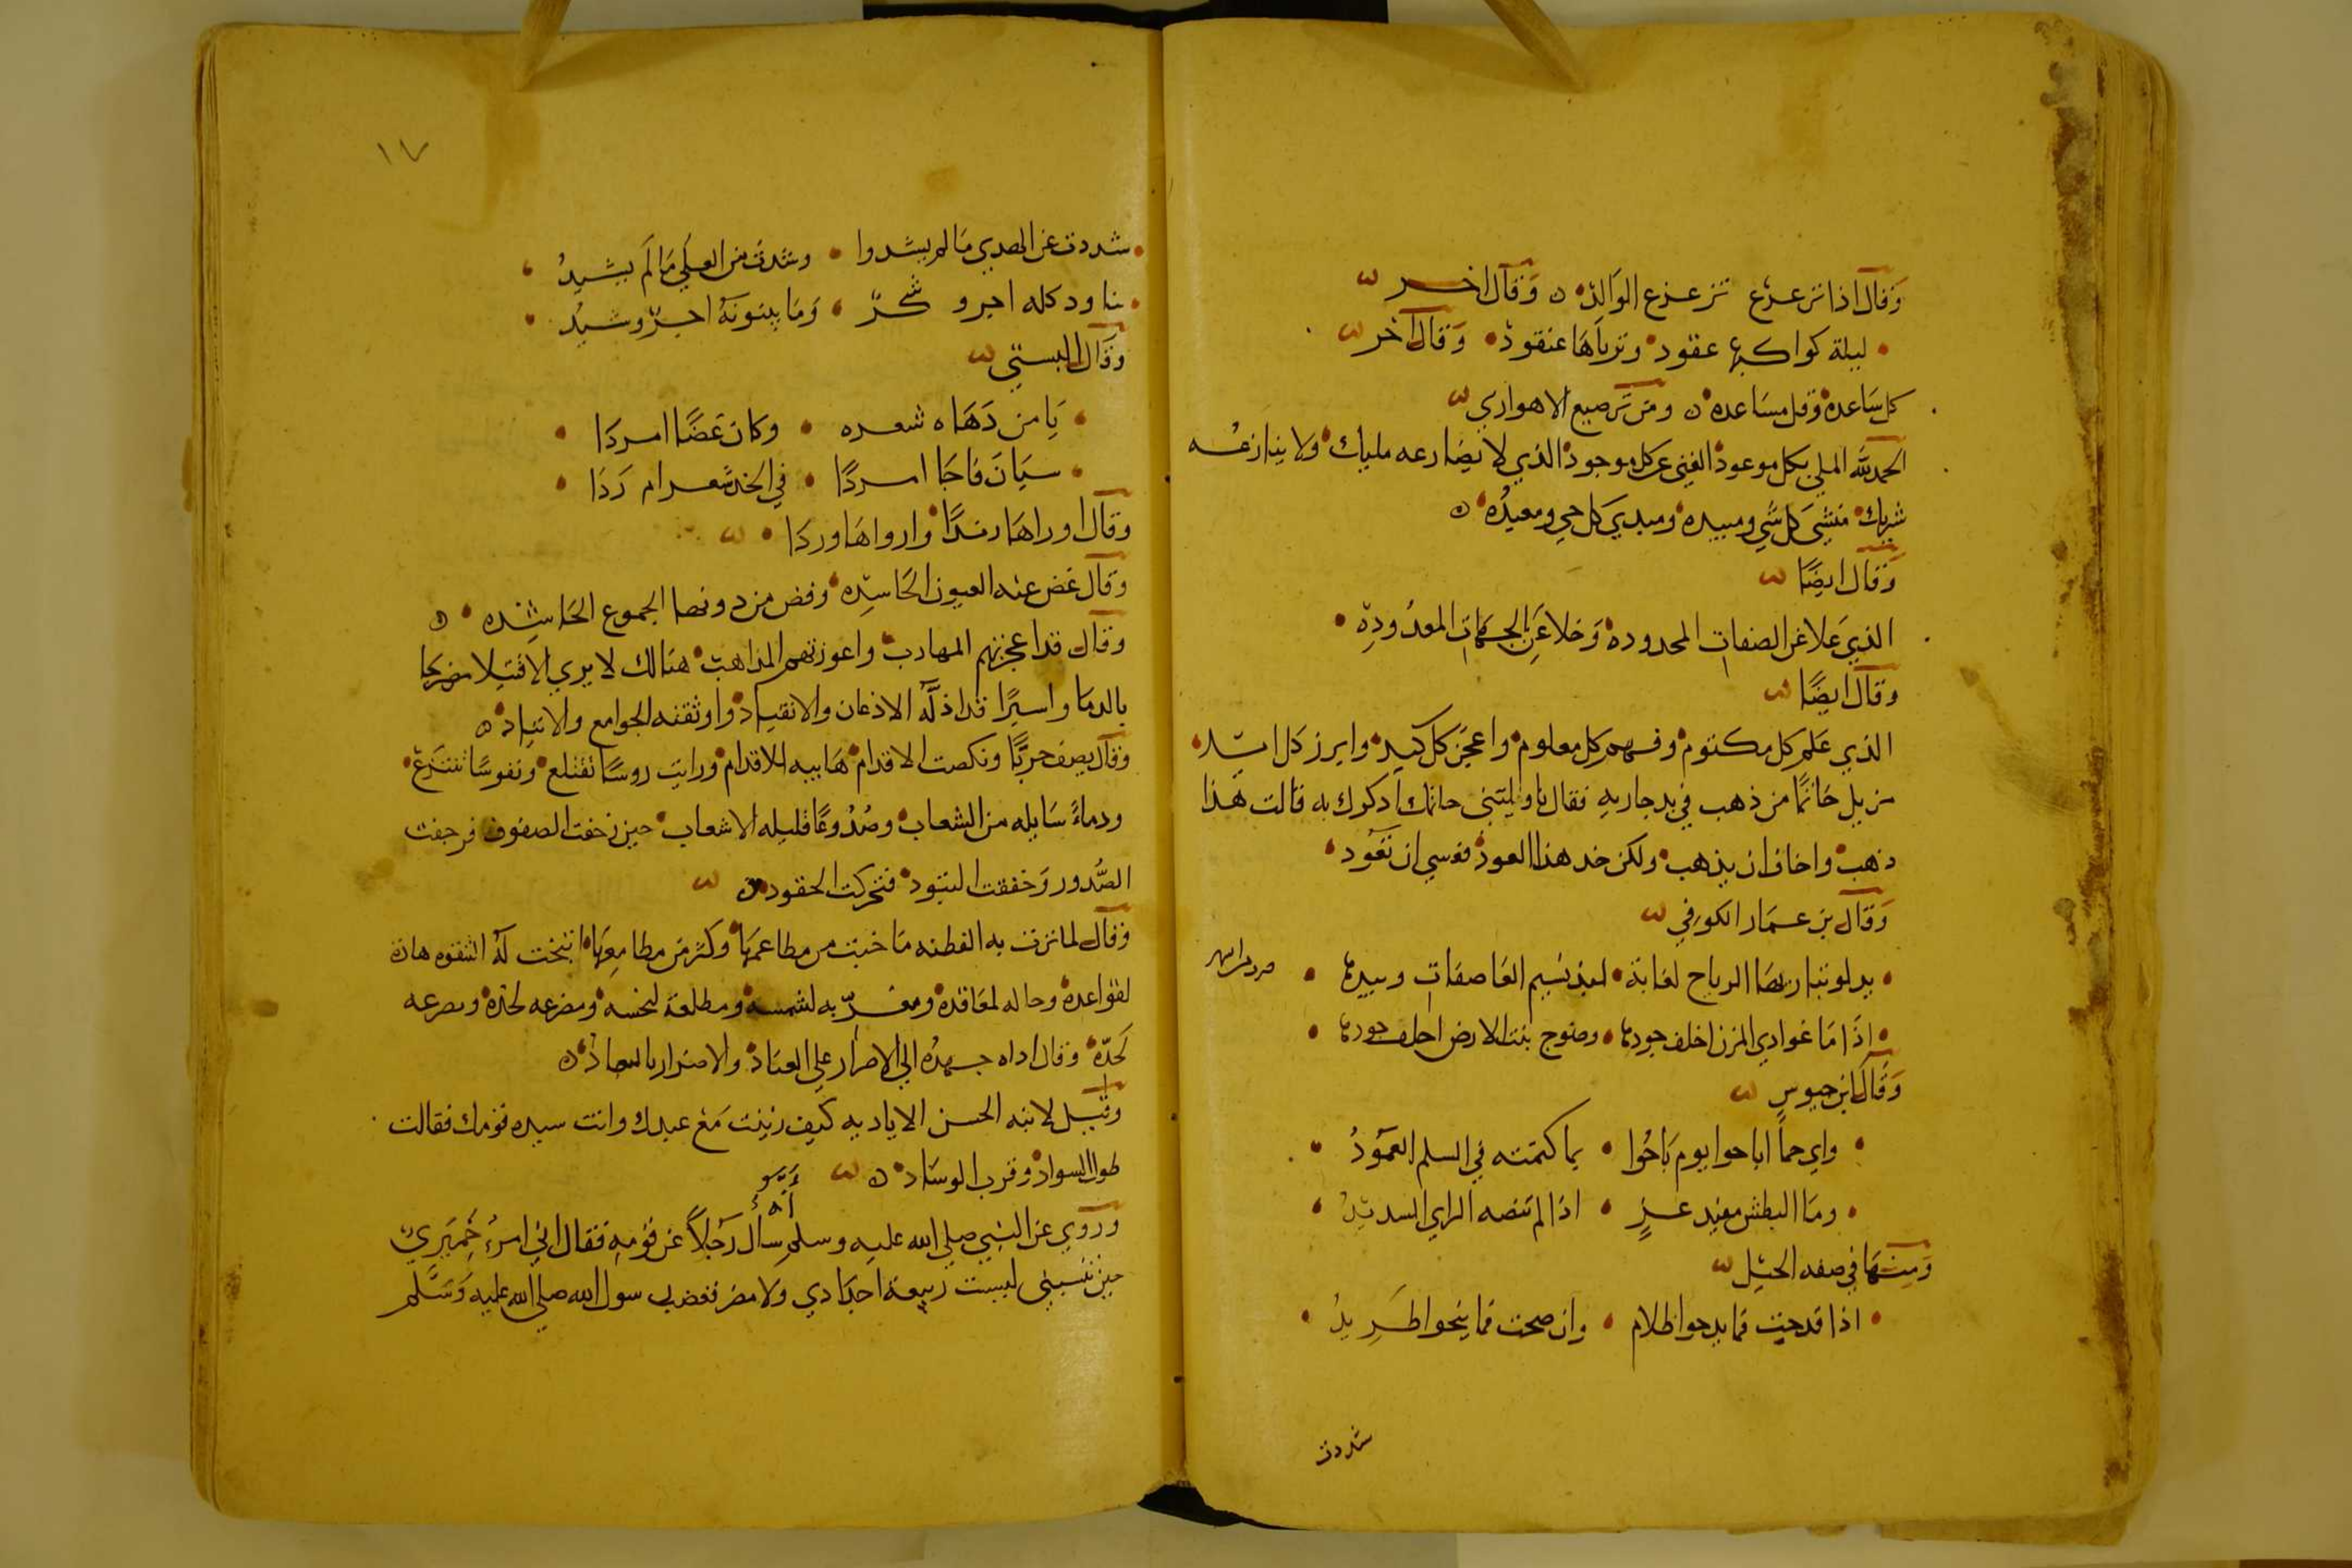 وقال اذا تزعزع تزعزع الوالد وقال اخر
ليلة كواكبها عقود وثرياها عنقود وقال اخر
كل ساعده وقل مساعده ومن ترصيع الاهوازي
الحمد لله الملي بكل موعود الغني عن كل موجود الذي لا يضارعه مليك ولا ينازعه
شريك منشئ كل شي ومبيده ومبدي كل حي ومعيده
وقال ايضا
الذي علا عن الصفات المحدوده وخلا عن الجهات المعدوده
وقال ايضا
الذي علم كل مكتوم وفهم كل معلوم واعجز كل كيد وابرز كل
خاتما من ذهب في يد جاريه فقال ناوليني خاتمك اذكرك به قالت هذا
ذهب واخاف ان يذهب ولكن خد هذا العود فعسي ان تعود
وقال بن عمار الكوفي
الرياح لغاية نسيم العاصفات
اذا ما غوادي المزن اخلف جودها بنت الارض اخلف جودها
وقال ابن حيوس
واي حما اباحوا يوم باحوا بما كتمته في السلم الغمود
وما البطش مفيد عز اذا لم تنضه الراي السديد
ومنها في صفه الخيل
اذا قدحت فما يدجوا ظلام وان صحت فما ينجوا طريد
شددت
١٧
شددت عن الصدي ما لم يشدوا وشدت من العلي ما لم يشيد
وما يبنونه اجر وشيد
وقال البستي
يا من دهاه شعره وكان غضا امردا
سيان فاجا امردا في الخد شعر ام ردا
وقال اوراها زندا وارواها وردا
وقال غض عنه العيون الحاسده وفض من دونها الجموع الحاشده
وقال قد اعجزتهم المهارب واعوزتهم المذاهب هنالك لا يري الا قتيلا مضرجا
بالدما واسيرا قد اذله الاذعان والانقياد واوثقته الجوامع والاقياد
وقال يصف حربا ونكصت الاقدام هايبه للاقدام ورايت روسا تقتلع ونفوسا تنتزع
ودماء سايله من الشعاب وصدوعا قليله الاشعاب حين زحفت الصفوف فرجفت
الصدور وخفقت البنود فتحركت الحقود
وقال لما نزقت به الفطنه ما خبث من مطاعمها وكثر من مطامعها انتخت له
لقواعده وحاله لمعاقده به لشمسه ومطلعة لنحسه
وقال اداه جهده الي الاصرار علي العناد والاضرار بالعباد
وقيل لابنه الحسن الاياديه كيف زنيت مع عبدك وانت سيده قومك فقالت
طول السواد وقرب الوساد
انه
وروي عن النبي صلي الله عليه وسلم سال رجلا عن قومه فقال اني امرء حميري
حين تنسبني ليست ربيعة اجدادي ولا مضر فغضب رسول الله صلي الله عليه وسلم